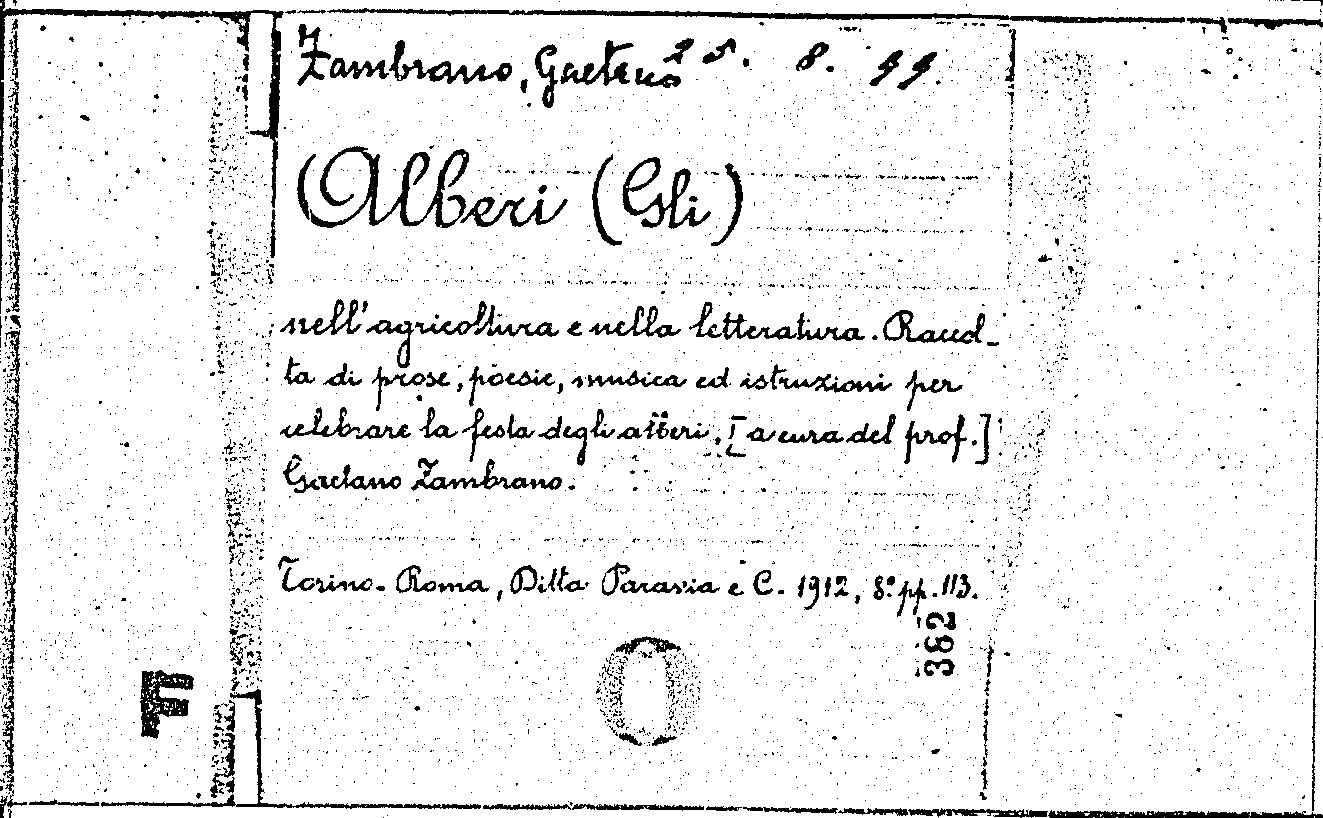 Zambrano, Gaetano 25. 8. 99.
Alberi (Gli)
nell'agricoltura e nella letteratura. Raccol-
ta di prose, poesie, musica ed istruzioni per
celebrare la festa degli alberi. [a cura del prof.]
Gaetano Zambrano.
Torino-Roma, Ditta Paravia e C. 1912, 8° pp. 113.
362
F